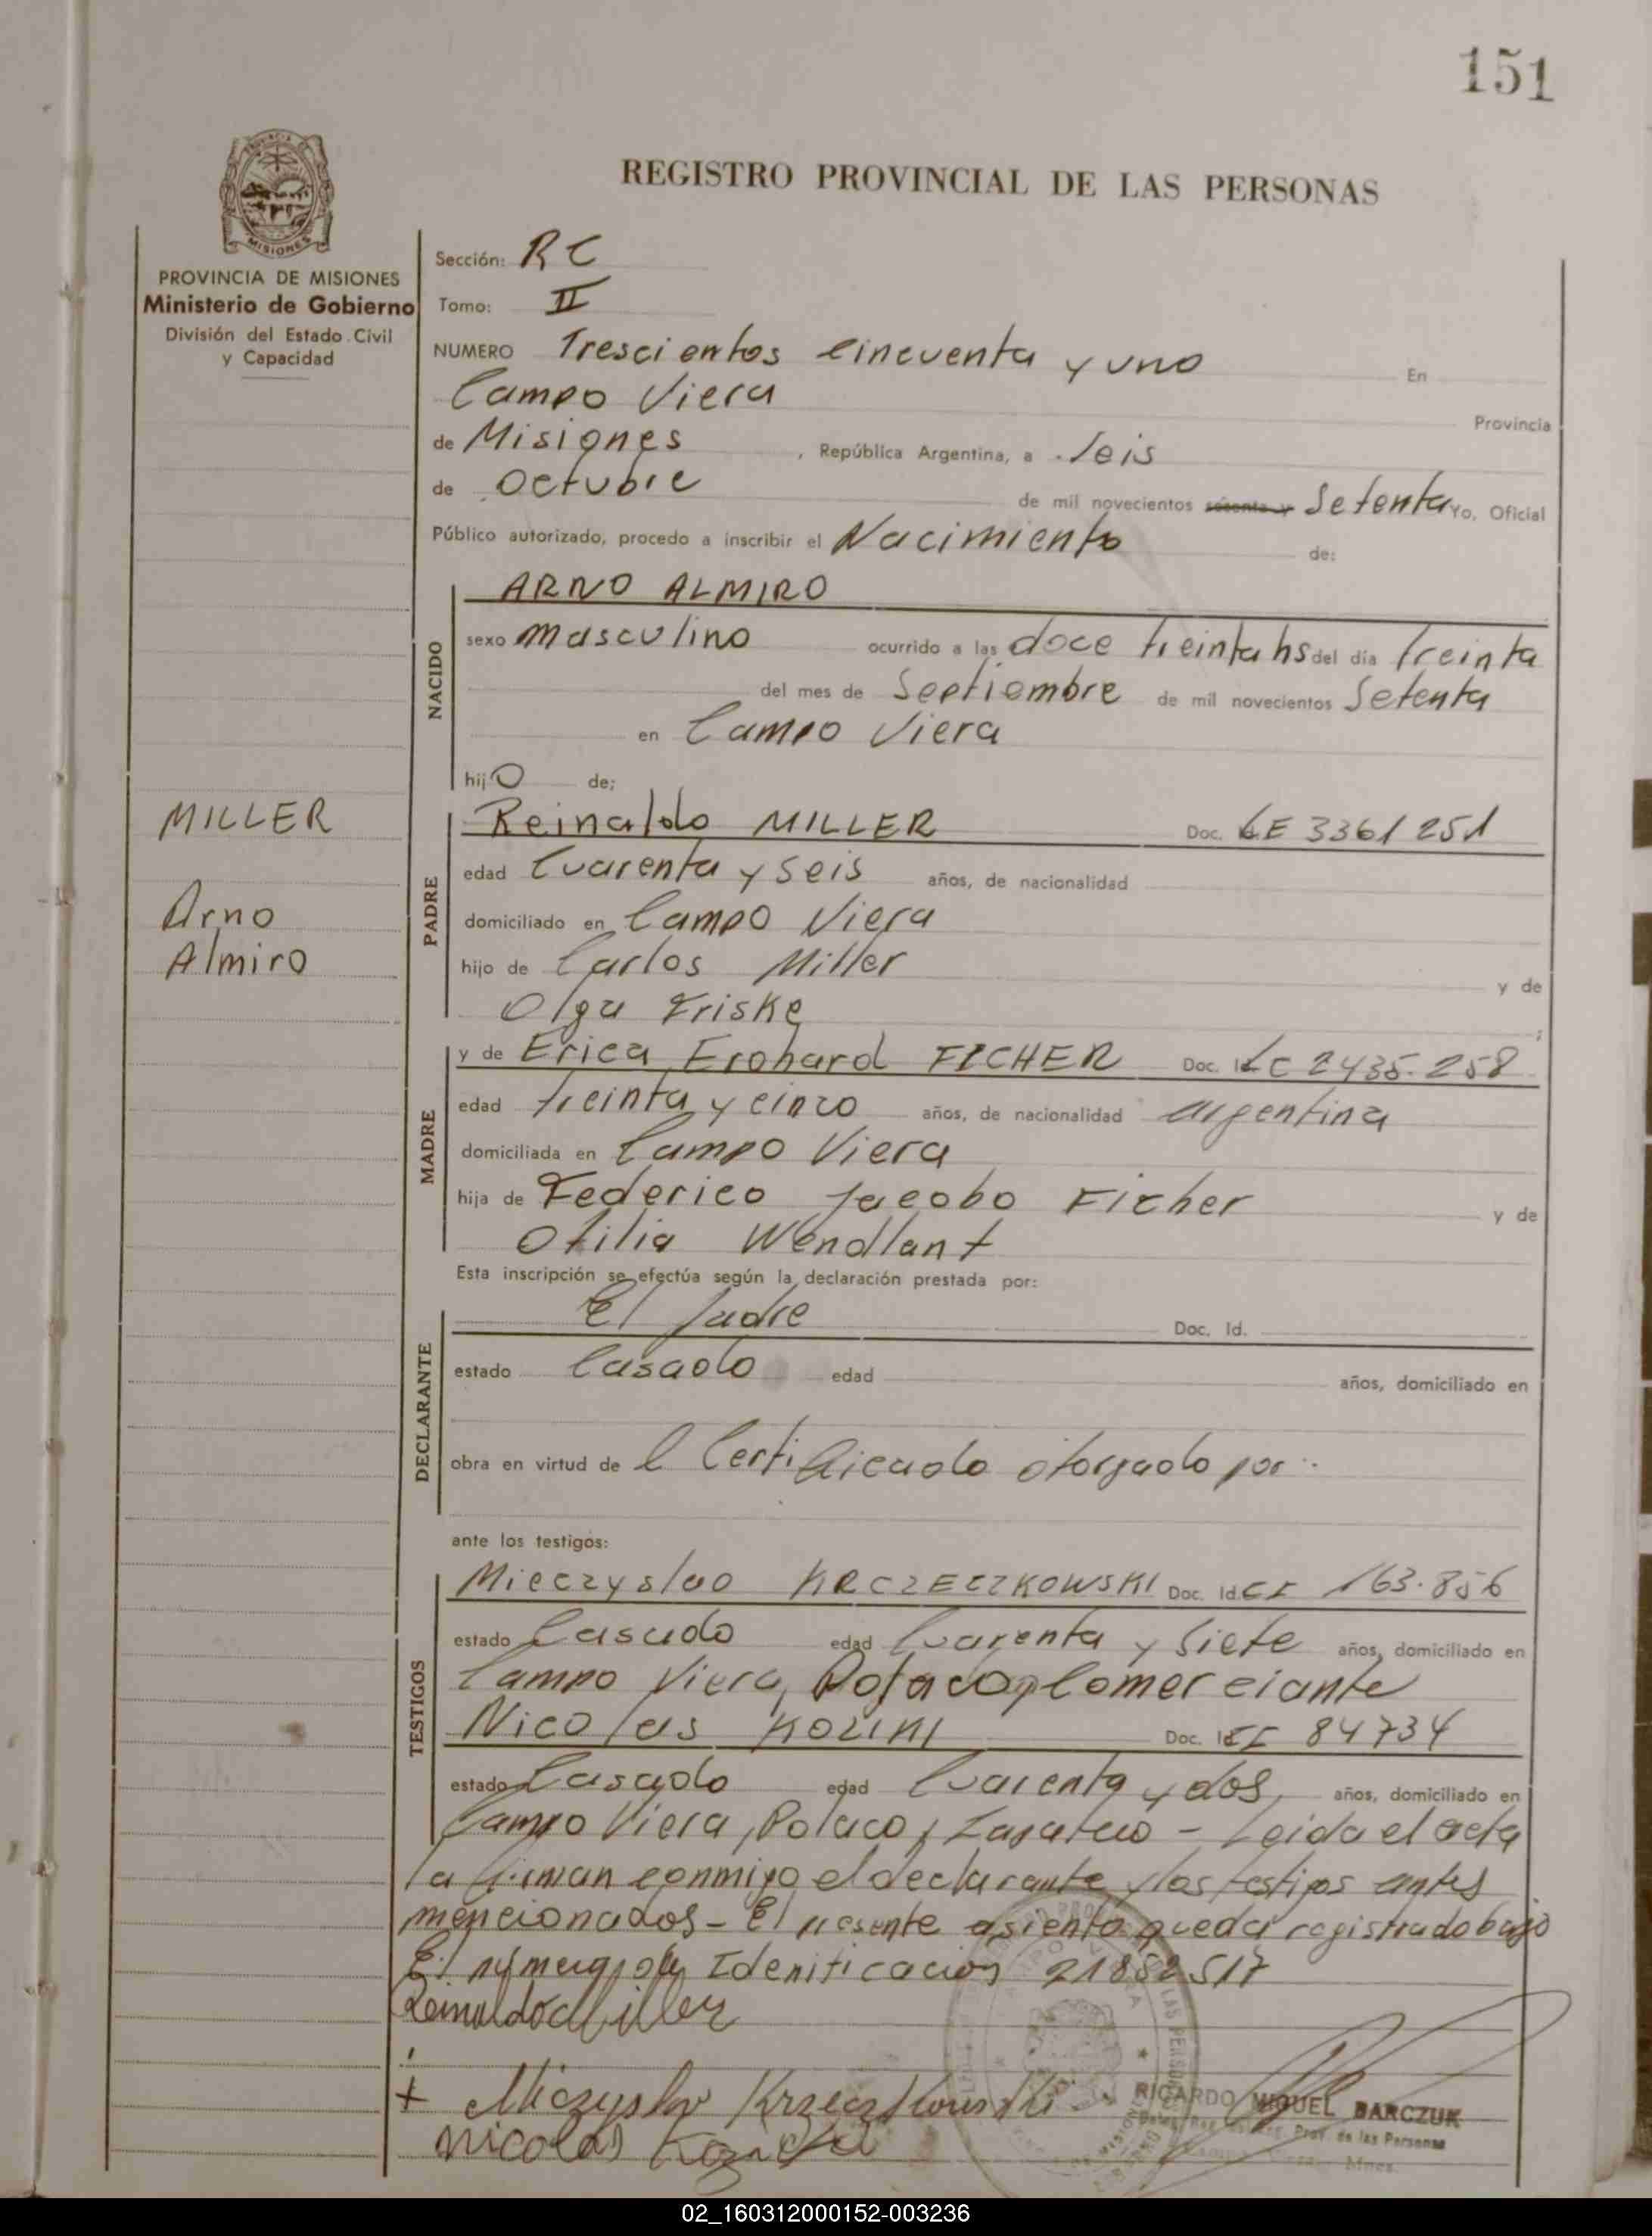 151
REGISTRO PROVINCIAL DE LAS PERSONAS
PROVINCIA DE MISIONES
Ministerio de Gobierno
División del Estado Civil
y Capacidad
Sección: RC
Tomo: II
NUMERO Trescientos Cincuenta y uno En
Campo Viera Provincia
de Misiones , República Argentina, a Seis
de Octubre de mil novecientos sesenta y Setenta Yo, Oficial
Público autorizado, procedo a inscribir el Nacimiento de:
NACIDO
ARNO ALMIRO
sexo masculino ocurrido a las doce treinta hs del día treinta
del mes de Septiembre de mil novecientos Setenta
en Campo Viera
hijo de;
MILLER
Arno
Almiro
PADRE
Reinaldo MILLER Doc. LE 3361251
edad Cuarenta y Seis años, de nacionalidad
domiciliado en Campo Viera
hijo de Carlos Miller y de
Olga Friske
MADRE
y de Erica Erohard FICHER Doc. LC 2435.258
edad treinta y cinco años, de nacionalidad argentina
domiciliada en Campo Viera
hija de Federico Jacobo Ficher y de
Otilia Wendlant
Esta inscripción se efectúa según la declaración prestada por:
DECLARANTE
El Padre Doc. Id.
estado Casado edad años, domiciliado en
obra en virtud de l Certificado otorgado por
ante los testigos:
TESTIGOS
Mieczyslao KRCZECZKOWSKI Doc. Id. CI 163.856
estado Casado edad Cuarenta y Siete años, domiciliado en
Campo Viera, Polaco, Comerciante
Nicolas Doc. Id. CI 84734
estado Casado edad Cuarenta y dos, años, domiciliado en
Campo Viera, Polaco, Zapatero - Leida el acta
la firman conmigo el declarante y los testigos antes
mencionados - El presente asiento queda registrado bajo
El numero de Idenificacion 21852517
Reinaldo Miller
+ Mieczyslaw Krzeczkowski
Nicolas
RICARDO MIGUEL BARCZUK
Prov. de las Personas
02_160312000152-003236